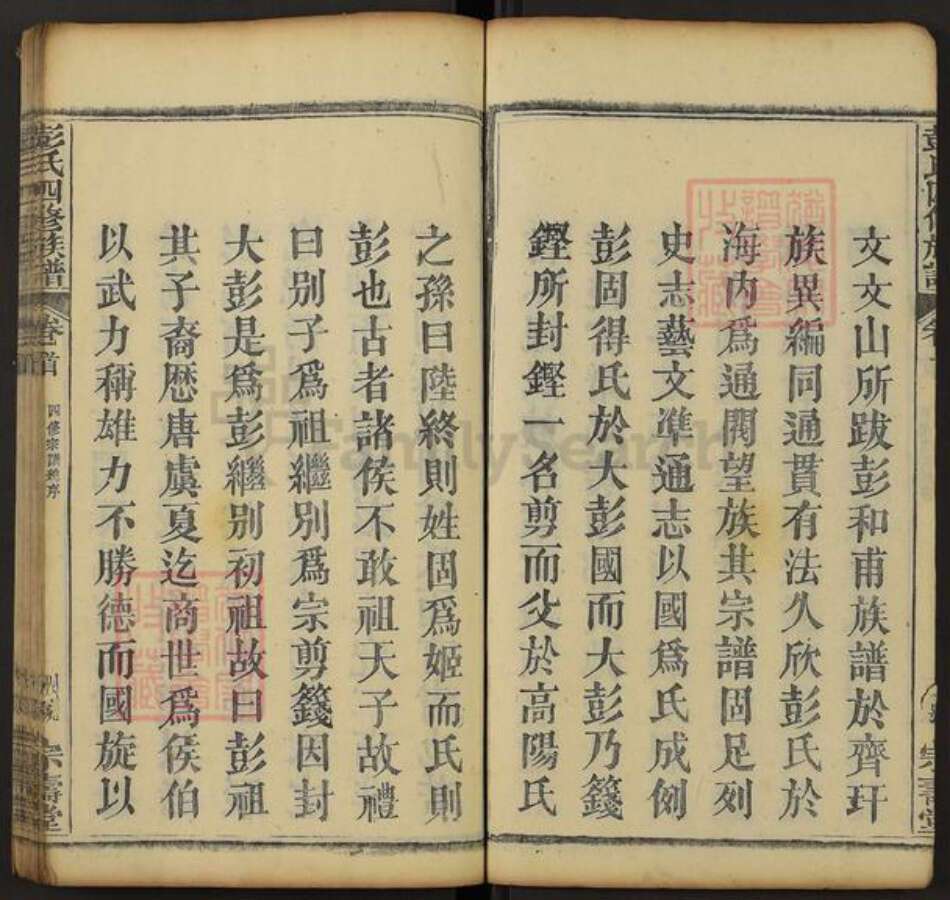 文文山所跋彭和甫族譜於齊玕
族異編同通貫有法久欣彭氏於
海內爲通閥望族其宗譜固足列
史志藝文準通志以國爲氏成例
彭固得氏於大彭國而大彭乃籛
鏗所封鏗一名剪而父於高陽氏
之孫曰陸終則姓固爲姬而氏則
彭也古者諸侯不敢祖天子故禮
曰別子爲祖繼別爲宗剪籛因封
大彭是爲彭繼別初祖故曰彭祖
其子裔歷唐虞夏迄商世爲侯伯
以武力稱雄力不勝德而國旋以
彭氏四修族譜
卷首
宗壽堂
FamilySearch